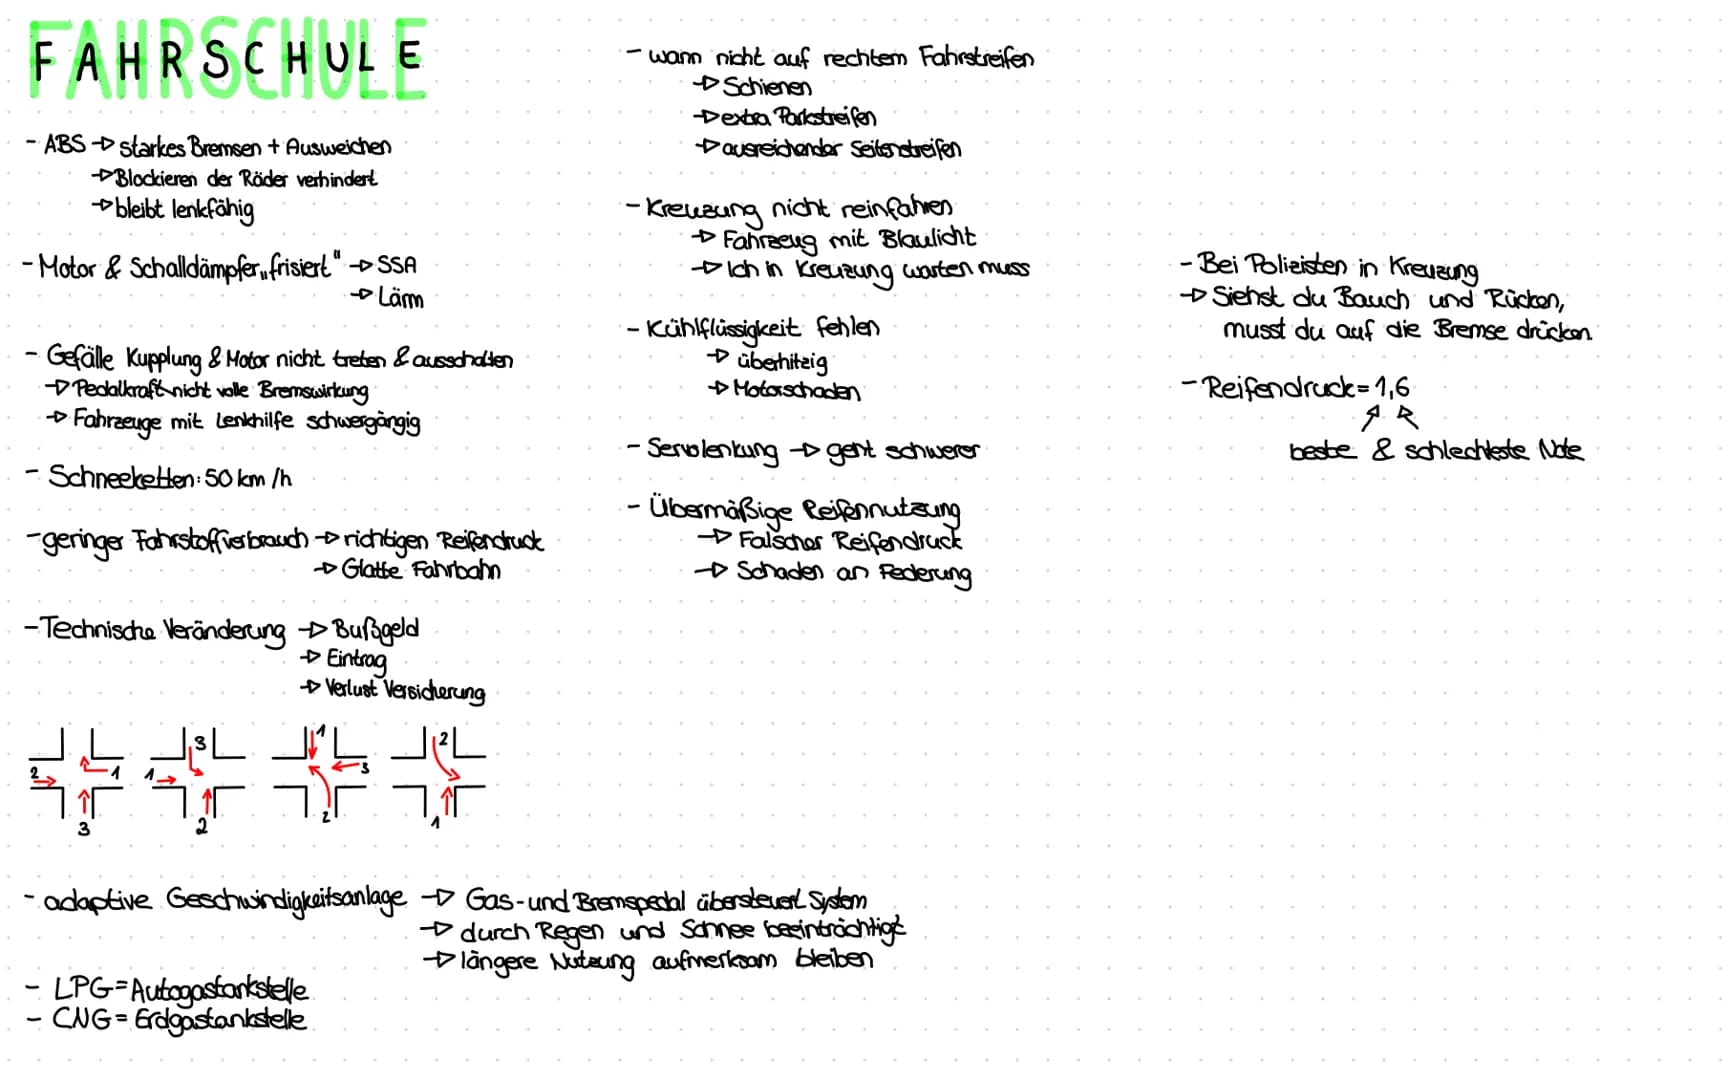 FAHRSCHULE
- ABS → starkes Bremsen + Ausweichen
→ Blockieren der Räder verhindert
→ bleibt lenkfähig
- Motor & Schalldämpfer „frisiert" → SSA
→ Lärm
- Gefälle Kupplung & Motor nicht treten & ausschalten
→ Pedalkraft nicht volle Bremswirkung
→ Fahrzeuge mit Lenkhilfe schwergängig
- Schneeketten: 50 km/h
- geringer Fahrstoffverbrauch → richtigen Reifendruck
→ Glatte Fahrbahn
- Technische Veränderung → Bußgeld
→ Eintrag
→ Verlust Versicherung
2 1 3
3 1 2
1 3 2
2 1
- adaptive Geschwindigkeitsanlage → Gas- und Bremspedal übersteuert System
→ durch Regen und Schnee beeinträchtigt
→ längere Nutzung aufmerksam bleiben
- LPG = Autogastankstelle
- CNG = Erdgastankstelle
- wann nicht auf rechtem Fahrstreifen
→ Schienen
→ extra Parkstreifen
→ ausreichender Seitenstreifen
- Kreuzung nicht reinfahren
→ Fahrzeug mit Blaulicht
→ Ich in Kreuzung warten muss
- Kühlflüssigkeit fehlen
→ überhitzig
→ Motorschaden
- Servolenkung → geht schwerer
- Übermäßige Reifennutzung
→ Falscher Reifendruck
→ Schaden an Federung
- Bei Polizisten in Kreuzung
→ Siehst du Bauch und Rücken,
musst du auf die Bremse drücken
- Reifendruck = 1,6
beste & schlechteste Note